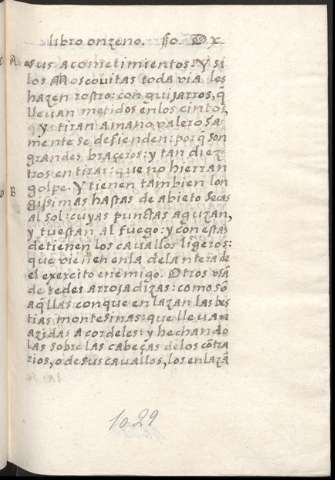 libro onzeno. fo. Dx
sus acometimientos: Y si
los Moscouitas toda via les
hazen rostro: con guijarros, q̃
lleuan metidos en los cintos,
y tiran a mano valerosa
mente se defienden: porq̃ son
grandes braçeros: y tan diez
tros en tirar: que no hierran
golpe. Y tienen tambien lon
gissimas hastas de abieto secas
al sol: cuyas punctas aguzan,
y tuestan al fuego: y con estas
detienen los cauallos ligeros:
que vienen en la delantera de
el exercito enemigo. Otros vsã
de redes arrojadizas: como sõ
aq̃llas con que enlazan las bes
tias montesinas: que lleuan
azidas a cordeles: y hechando
las sobre las cabeças de los cõtra
rios, o de sus cauallos, los enlazã
1029